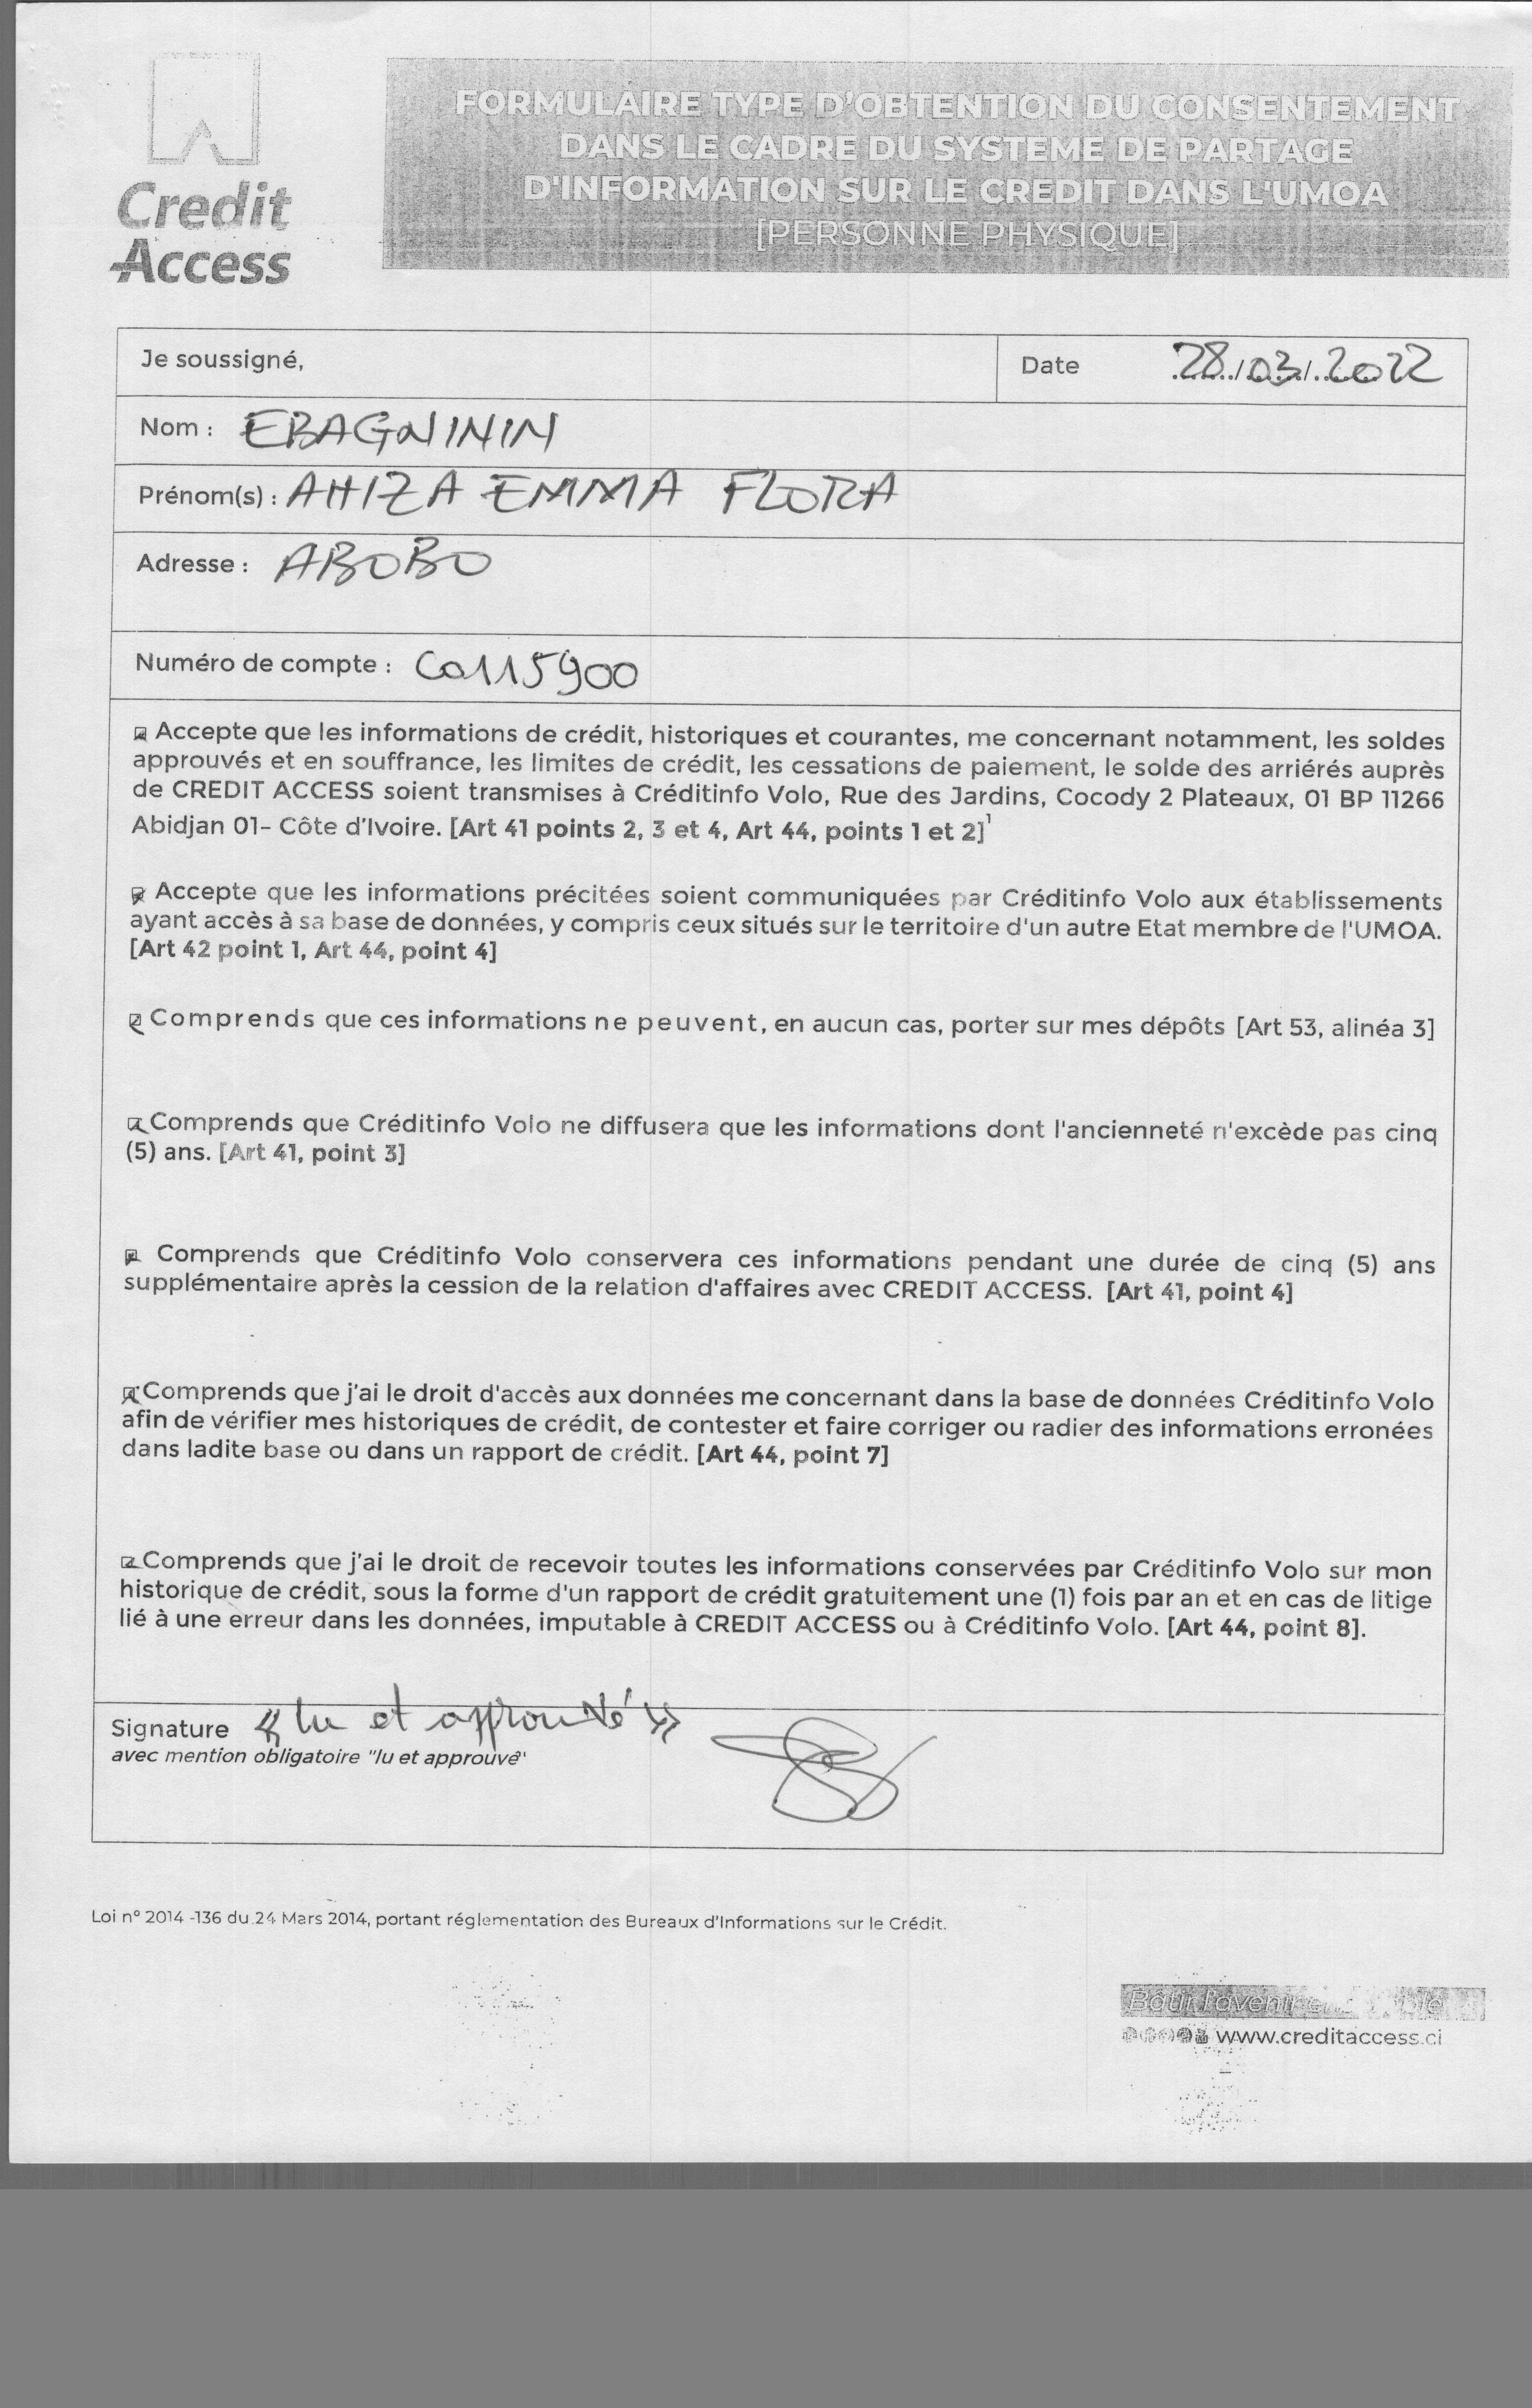 Credit
Access
FORMULAIRE TYPE D'OBTENTION DU CONSENTEMENT
DANS LE CADRE DU SYSTEME DE PARTAGE
D'INFORMATION SUR LE CREDIT DANS L'UMOA
[PERSONNE PHYSIQUE]
Je soussigné,
Date 28/03/2022
Nom : EBAGNININ
Prénom(s) : AHIZA EMMA FLORA
Adresse : ABOBO
Numéro de compte : C0115900
Accepte que les informations de crédit, historiques et courantes, me concernant notamment, les soldes
approuvés et en souffrance, les limites de crédit, les cessations de paiement, le solde des arriérés auprès
de CREDIT ACCESS soient transmises à Créditinfo Volo, Rue des Jardins, Cocody 2 Plateaux, 01 BP 11266
Abidjan 01- Côte d'Ivoire. [Art 41 points 2, 3 et 4, Art 44, points 1 et 2]1
Accepte que les informations précitées soient communiquées par Créditinfo Volo aux établissements
ayant accès à sa base de données, y compris ceux situés sur le territoire d'un autre Etat membre de l'UMOA.
[Art 42 point 1, Art 44, point 4]
Comprends que ces informations ne peuvent, en aucun cas, porter sur mes dépôts [Art 53, alinéa 3]
Comprends que Créditinfo Volo ne diffusera que les informations dont l'ancienneté n'excède pas cinq
(5) ans. [Art 41, point 3]
Comprends que Créditinfo Volo conservera ces informations pendant une durée de cinq (5) ans
supplémentaire après la cession de la relation d'affaires avec CREDIT ACCESS. [Art 41, point 4]
Comprends que j'ai le droit d'accès aux données me concernant dans la base de données Créditinfo Volo
afin de vérifier mes historiques de crédit, de contester et faire corriger ou radier des informations erronées
dans ladite base ou dans un rapport de crédit. [Art 44, point 7]
Comprends que j'ai le droit de recevoir toutes les informations conservées par Créditinfo Volo sur mon
historique de crédit, sous la forme d'un rapport de crédit gratuitement une (1) fois par an et en cas de litige
lié à une erreur dans les données, imputable à CREDIT ACCESS ou à Créditinfo Volo. [Art 44, point 8].
Signature « lu et approuvé »
avec mention obligatoire "lu et approuvé"
Loi n° 2014 -136 du 24 Mars 2014, portant réglementation des Bureaux d'Informations sur le Crédit.
Bâtir l'avenir
www.creditaccess.ci